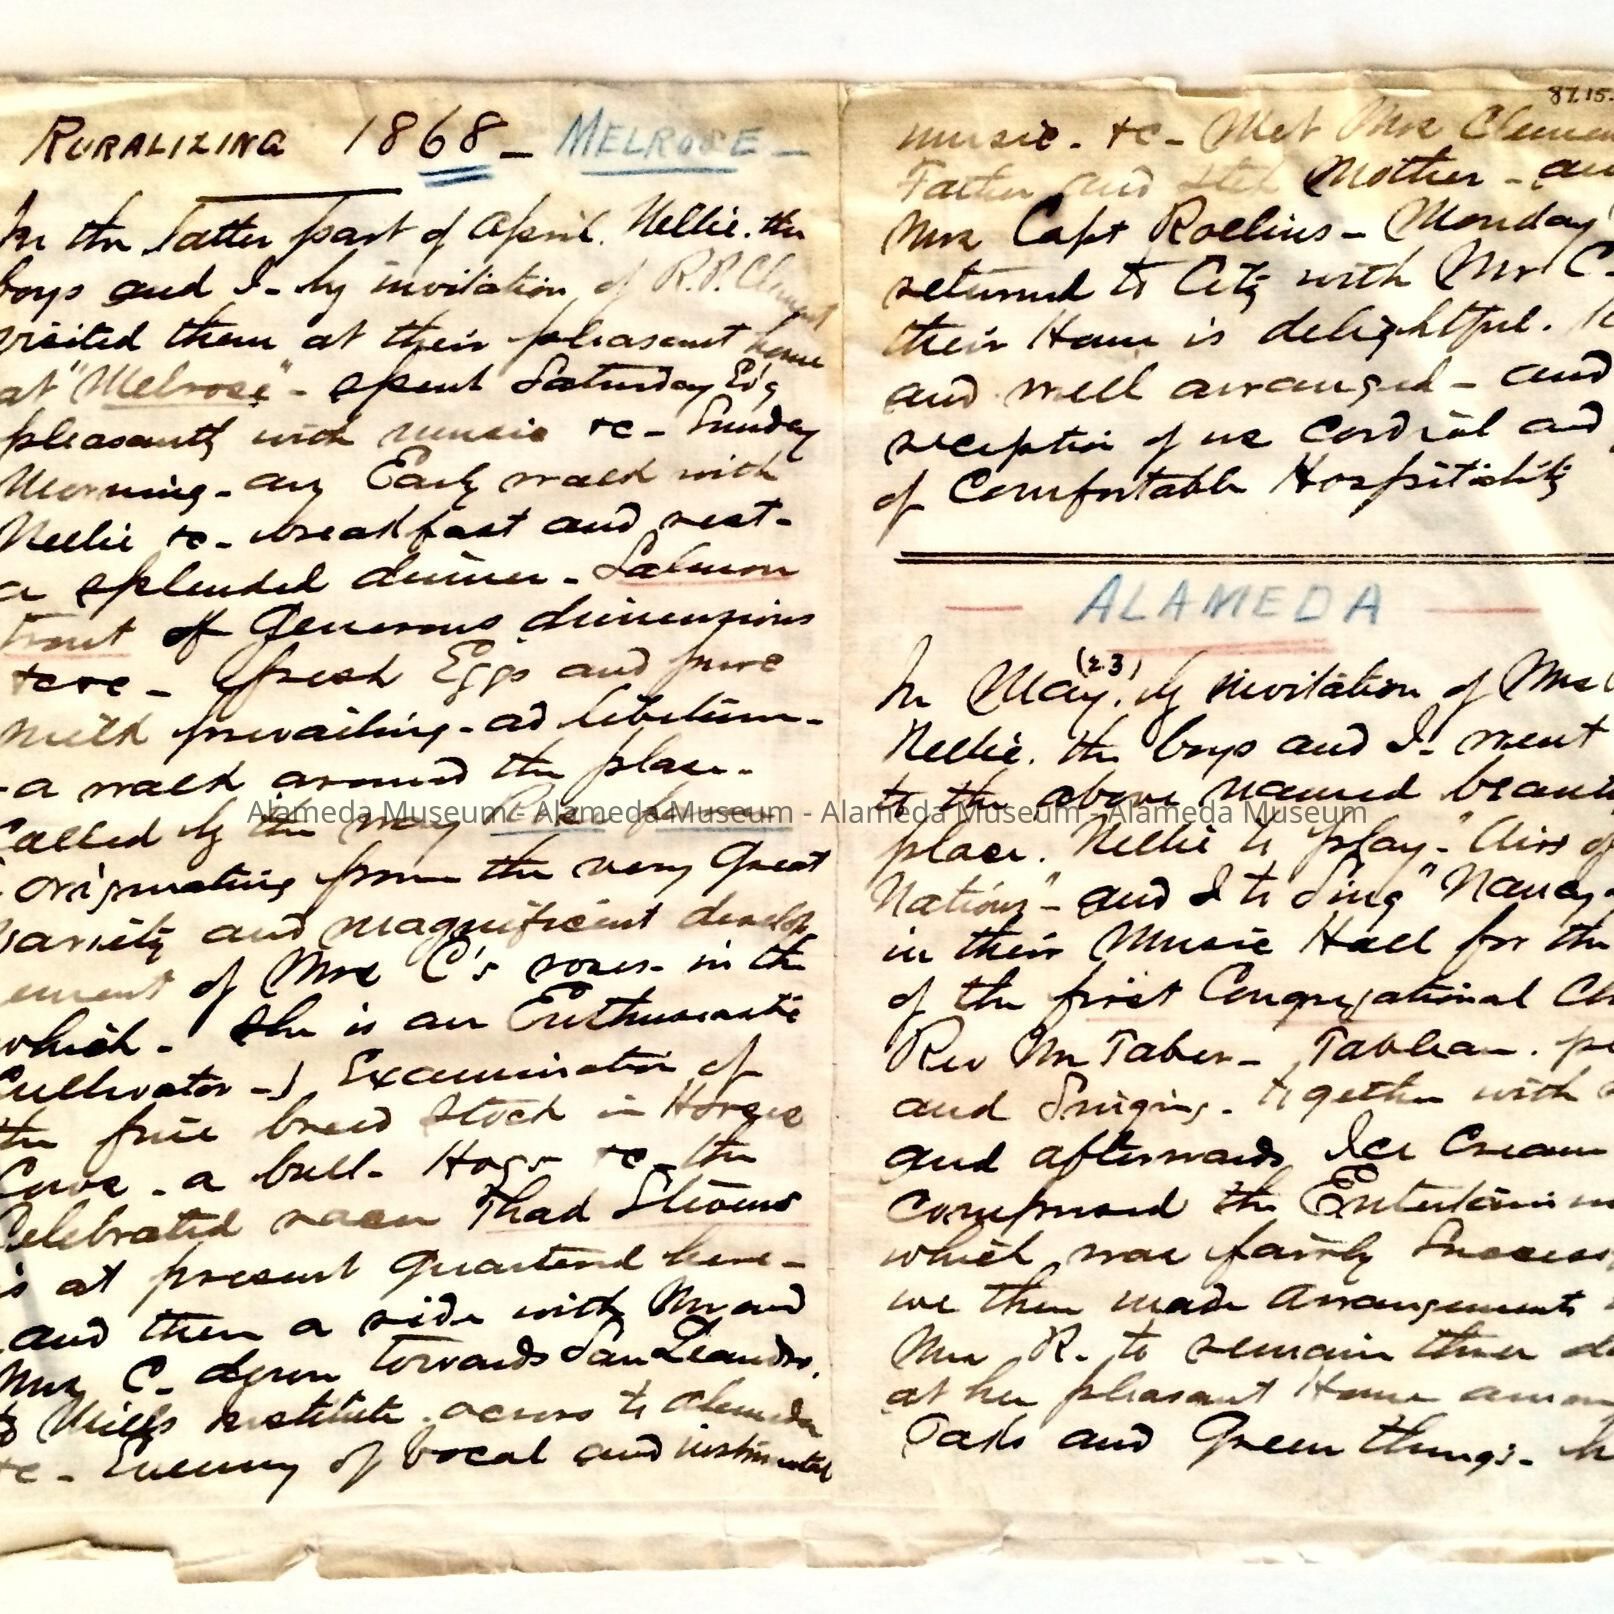 RURALIZING 1868 - MELROSE -
In the latter part of April. Nellie. the
boys and I - by invitation of R.P. Clement
visited them at their pleasant home
at "Melrose" - spent Saturday Ev'g
pleasantly with music &c - Sunday
Morning - an Early walk with
Nellie &c - breakfast and rest -
a splendid dinner - Salmon
Trout of Generous dimensions
&c &c - fresh Eggs and pure
milk prevailing - ad libitum -
- a walk around the place -
called by the way
originating from the very Great
variety and magnificent develop
ement of Mrs C's roses - in the
which - She is an Enthusiastic
Cultivator -) Examination of
the fine breed Stock in Horses
Cows - a bull - Hogs &c - the
Celebrated racer Thad Stevens
is at present quartered here -
and then a ride with Mr and
Mrs C - down towards San Leandro.
to Mills institute. across to Alameda
&c - Evening of vocal and instrumental
87.15.
music - &c - Met Mrs Clemen
Father and Step Mother - an
Mrs Capt Rollins - Monday
returned to City with Mr C -
their Home is delightful.
and well arranged - and
reception of us cordial and
of Comfortable Hospitality
ALAMEDA
In May (23), by invitation of Mrs
Nellie. the boys and I - went
to the above named beaut
place. Nellie to "play" - "Airs of
Nations" - and I to sing "Nancy -
in their Music Hall for the
of the first Congregational Ch
Rev Mr Taber - Tableau. p
and Singing - together with
and afterwards Ice Cream
comprised the Entertainm
which was fairly Success
we then made arrangements
Mrs R. to remain there d
at her pleasant Home amon
Oaks and Green things -
Alameda Museum - Alameda Museum - Alameda Museum - Alameda Museum